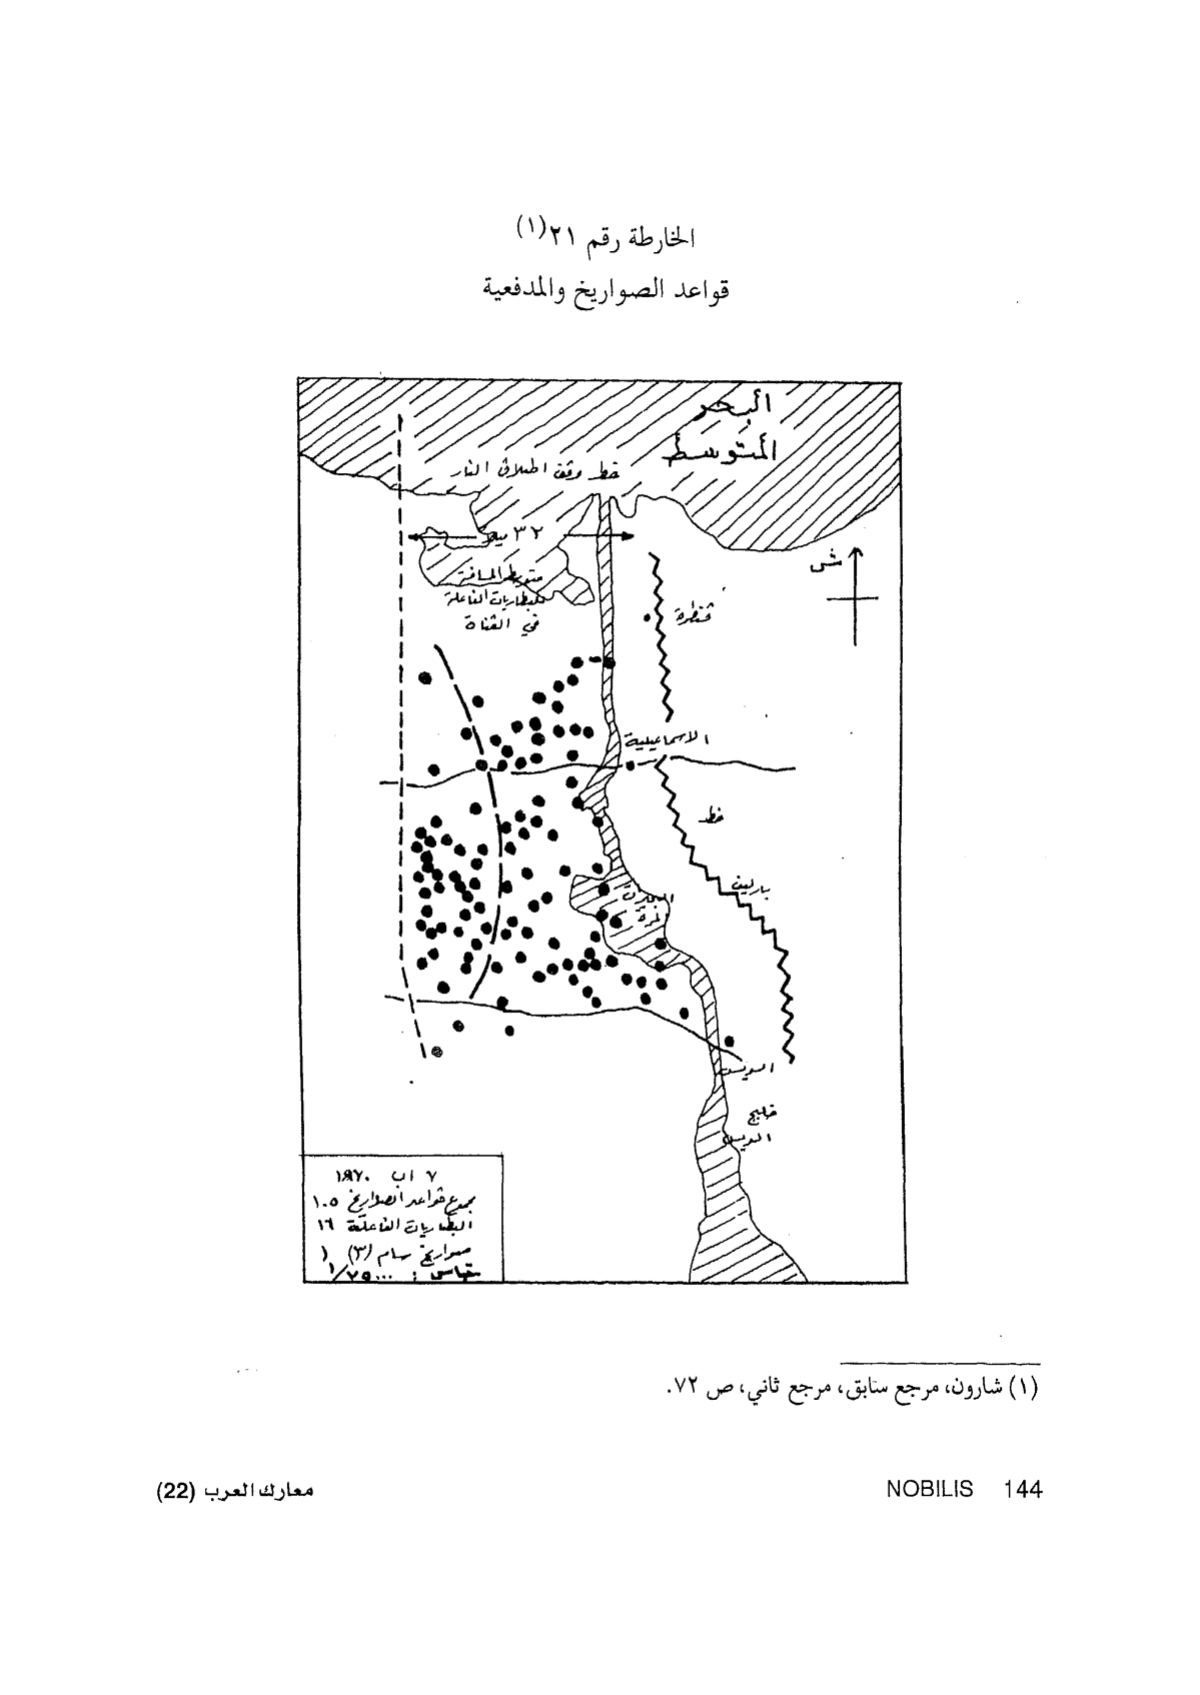 الخارطة رقم ٢١(١)
قواعد الصواريخ والمدفعية
ألبحر
ألمتوسط
خط وقف اطلاق النار
٣٢ ميلا
متوسط المسافة
للبطاريات الفاعلة
في القناة
ش
قنطرة
الاسماعيلية
خط
بارليف
البحيرات
المرة
السويس
خليج
السويس
٧ اب ١٩٧٠
مجموع قواعد الصواريخ ١٠٥
البطاريات الفاعلة ١٦
صواريخ سام (٣) ١
مقياس : ١/٧٥٠٠٠٠
(١) شارون، مرجع سابق، مرجع ثاني، ص ٧٢.
معارك العرب (22)
NOBILIS 144